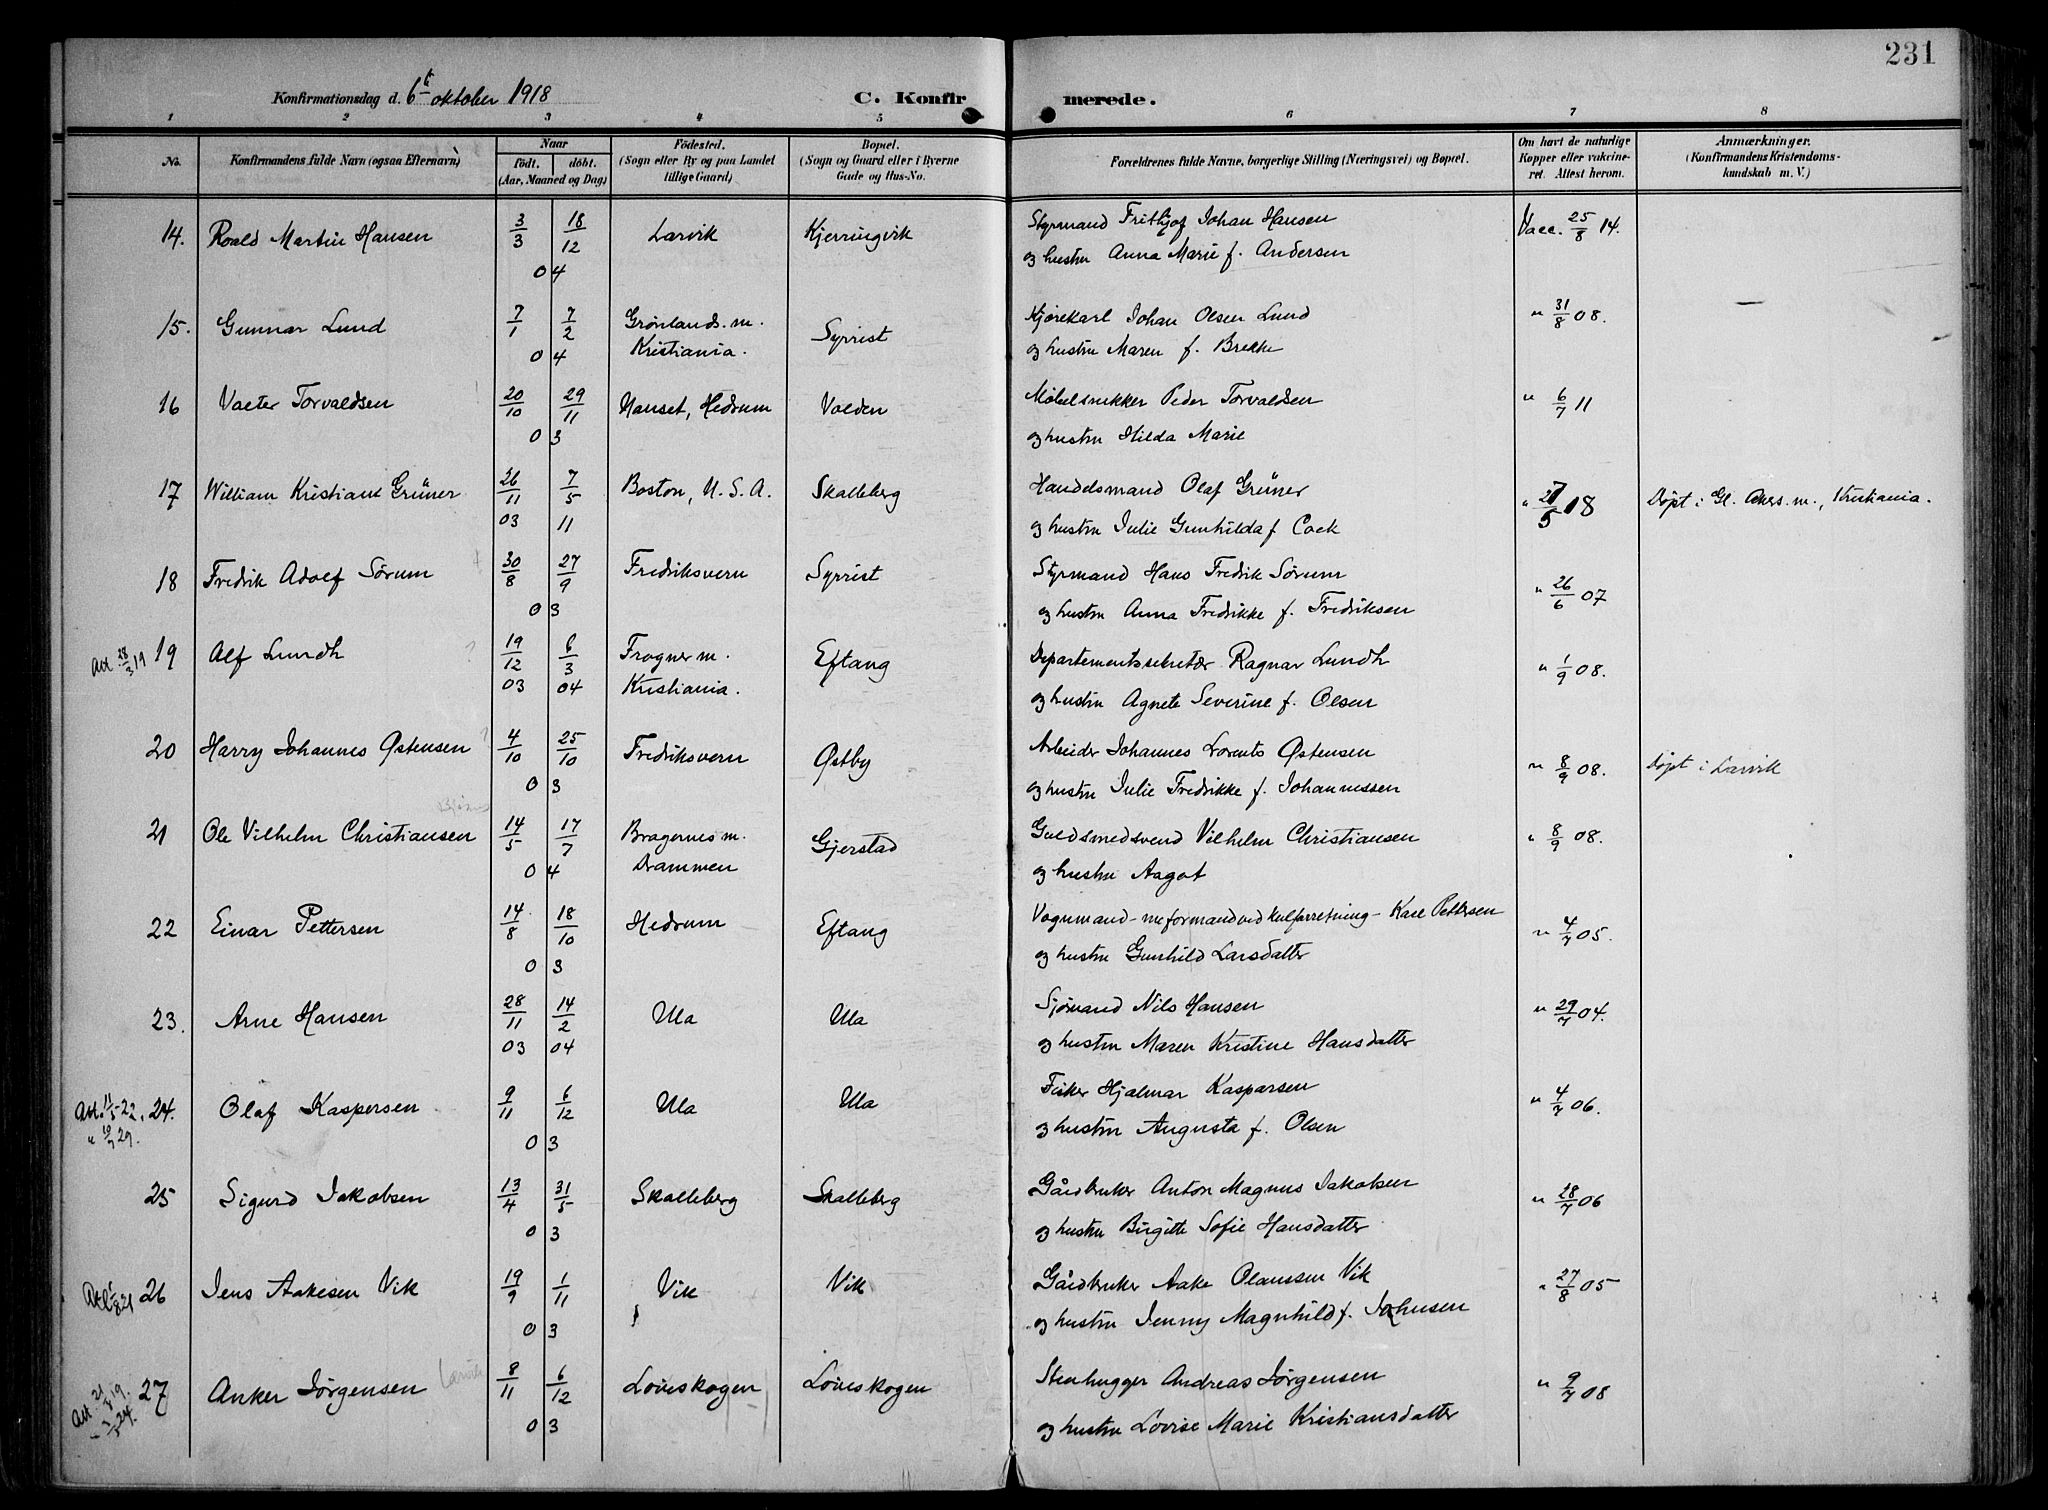 231
Konfirmationsdag d. 6te oktober 1918
C. Konfirmerede.
1 2 3 4 5 6 7 8
No. Konfirmandens fulde Navn (ogsaa Efternavn) Naar født. døbt. (Aar, Maaned og Dag) Fødested. (Sogn eller By og paa Landet tillige Gaard) Bopæl. (Sogn og Gaard eller i Byerne Gade og Hus-No. Forældrenes fulde Navne, borgerlige Stilling (Næringsvei) og Bopæl. Om havt de naturlige Kopper eller vakcineret. Attest herom. Anmærkninger. (Konfirmandens Kristendomskundskab m. V.)
14. Roald Martin Hansen 3/3 18/12 Larvik Kjerringvik Styrmand Frithjof Johan Hansen Vacc. 25/8 14.
04 og hustru Anna Marie f. Andersen
15. Gunnar Lund 7/1 7/2 Grønlands m. Syrrist Kjørekarl Johan Olsen Lund " 31/8 08.
04 Kristiania. og hustru Maren f. Brekke
16 Valter Torvaldsen 20/10 29/11 Nanset, Hedrum Volden Møbelsnekker Peder Torvaldsen " 6/7 11
03 og hustru Hilda Marie
17 William Kristian Grüner 26/11 7/5 Boston, U.S.A. Skalleberg Handelsmand Olaf Grüner " 27/5 18 Døpt i Gl. Akers m., Kristiania.
03 11 og hustru Julie Gunhilda f. Cock
18 Fredrik Adolf Sørum 30/8 27/9 Fredriksvern Syrrist Styrmand Hans Fredrik Sørum " 26/6 07
03 og hustru Anna Fredrikke f. Fredriksen
Att. 28/3 19 19 Alf Lundh 19/12 6/3 Frogner m. Eftang Departementssekretær Ragnar Lundh " 1/9 08.
03 04 Kristiania. og hustru Agnete Severine f. Olsen
20 Harry Johannes Østensen 4/10 25/10 Fredriksvern Østby Arbeider Johannes Lorents Østensen " 8/9 08. Døpt i Larvik
03 og hustru Julie Fredrikke f. Johannessen
21 Ole Vilhelm Christiansen 14/5 17/7 Bragernes m. Gjerstad Guldsmedsvend Vilhelm Christiansen " 8/9 08.
04 Drammen og hustru Aagot
22 Einar Pettersen 14/8 18/10 Hedrum Eftang Vognmand - Karl Pettersen " 4/7 05.
03 og hustru Gunhild Larsdatter
23. Arne Hansen 28/11 14/2 Ula Ula Sjømand Nils Hansen " 29/7 04.
03 04 og hustru Maren Kristine Hansdatter
Att. 11/5 22. 24. Olaf Kaspersen 9/11 6/12 Ula Ula Fisker Hjalmar Kaspersen " 4/7 06.
" 10/7 29. 03 og hustru Augusta f. Olsen
25 Sigurd Jakobsen 13/4 31/5 Skalleberg Skalleberg Gårdbruker Anton Magnus Jakobsen " 28/7 06
03 og hustru Birgitte Sofie Hansdatter
26 Jens Aakesen Vik 19/9 1/11 Vik Vik Gårdbruker Aake Olaussen Vik " 27/8 05
03 og hustru Jenny Magnhild f. Johnsen
Att. 27 Anker Jørgensen 8/11 6/12 Løveskogen Løveskogen Stenhugger Andreas Jørgensen " 9/7 08
03 og hustru Lovise Marie Kristiansdatter